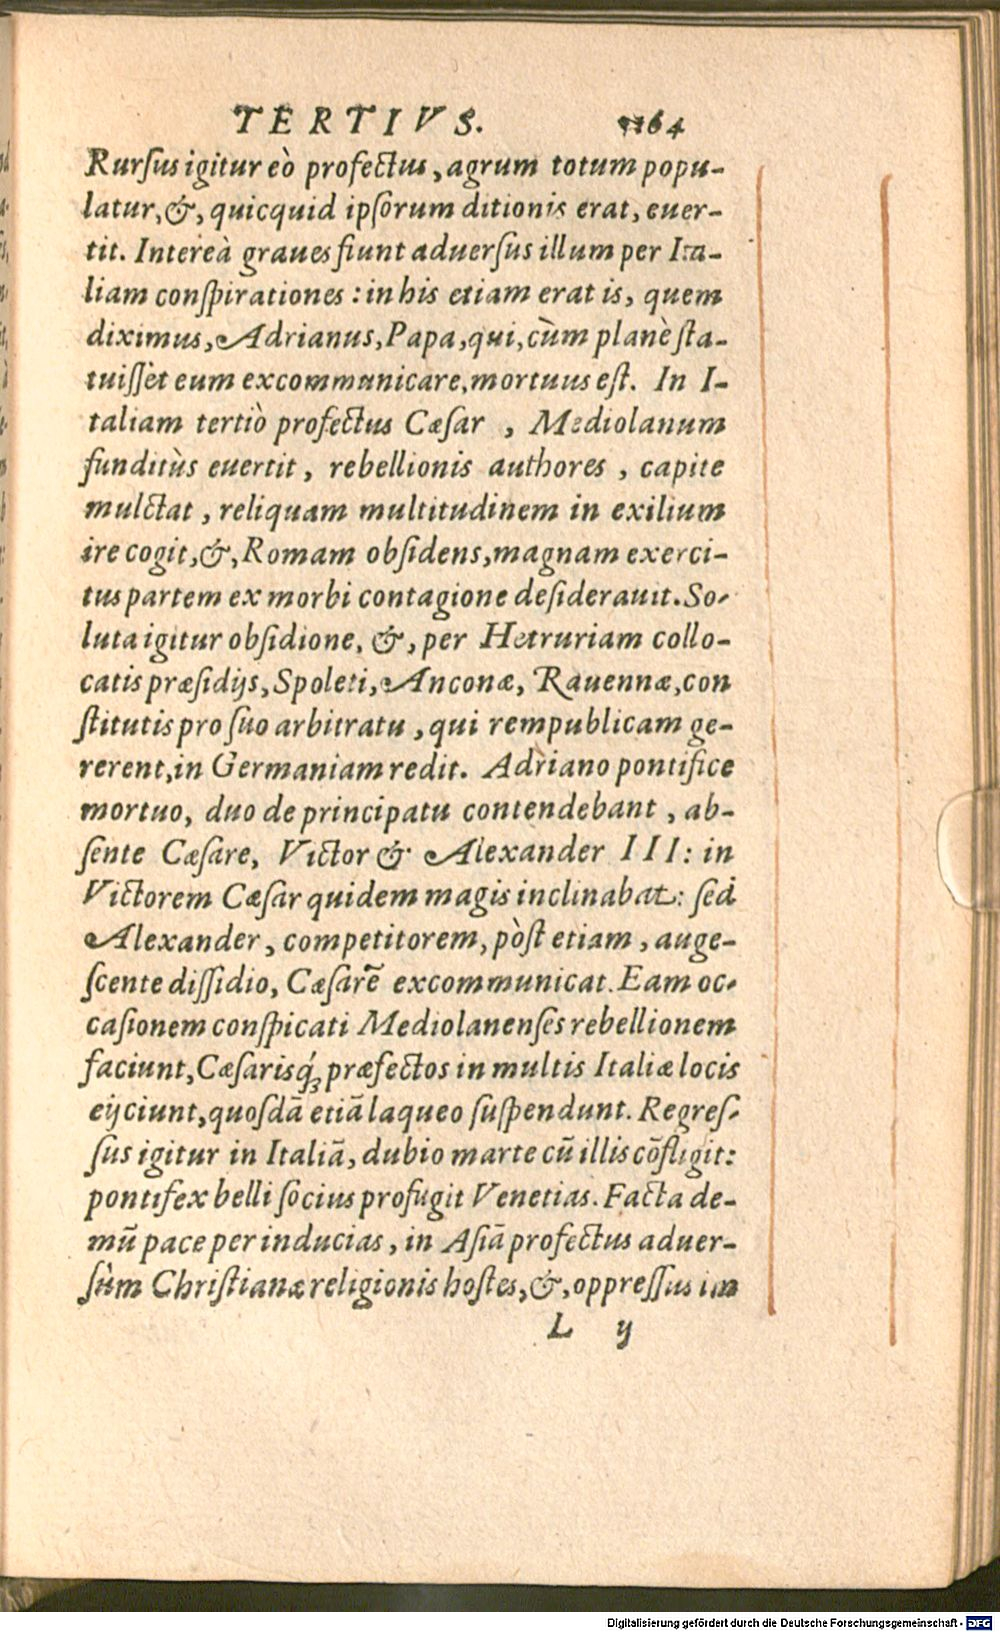 TERTIVS. 164
Rurſus igitur eò profectus, agrum totum popu-
latur, &, quicquid ipſorum ditionis erat, euer-
tit. Intereà graues fiunt aduerſus illum per Ita-
liam conſpirationes: in his etiam erat is, quem
diximus, Adrianus, Papa, qui, cùm planè ſta-
tuiſſèt eum excommunicare, mortuus eſt. In I-
taliam tertiò profectus Cæſar, Mediolanum
funditùs euertit, rebellionis authores, capite
mulctat, reliquam multitudinem in exilium
ire cogit, &, Romam obſidens, magnam exerci-
tus partem ex morbi contagione deſiderauit. So-
luta igitur obſidione, &, per Hetruriam collo-
catis præſidijs, Spoleti, Anconæ, Rauennæ, con
ſtitutis pro ſuo arbitratu, qui rempublicam ge-
rerent, in Germaniam redit. Adriano pontifice
mortuo, duo de principatu contendebant, ab-
ſente Cæſare, Victor & Alexander III: in
Victorem Cæſar quidem magis inclinabat: ſed
Alexander, competitorem, pòſt etiam, auge-
ſcente diſſidio, Cæſarē excommunicat. Eam oc-
caſionem conſpicati Mediolanenſes rebellionem
faciunt, Cæſarisq́; præfectos in multis Italiæ locis
eijciunt, quoſdā etiā laqueo ſuſpendunt. Regreſ-
ſus igitur in Italiā, dubio marte cū illis cōfligit:
pontifex belli ſocius profugit Venetias. Facta de-
mū pace per inducias, in Aſiā profectus aduer-
ſùm Chriſtianæ religionis hoſtes, &, oppreſſus im
L ij
Digitalisierung gefördert durch die Deutsche Forschungsgemeinschaft - DFG